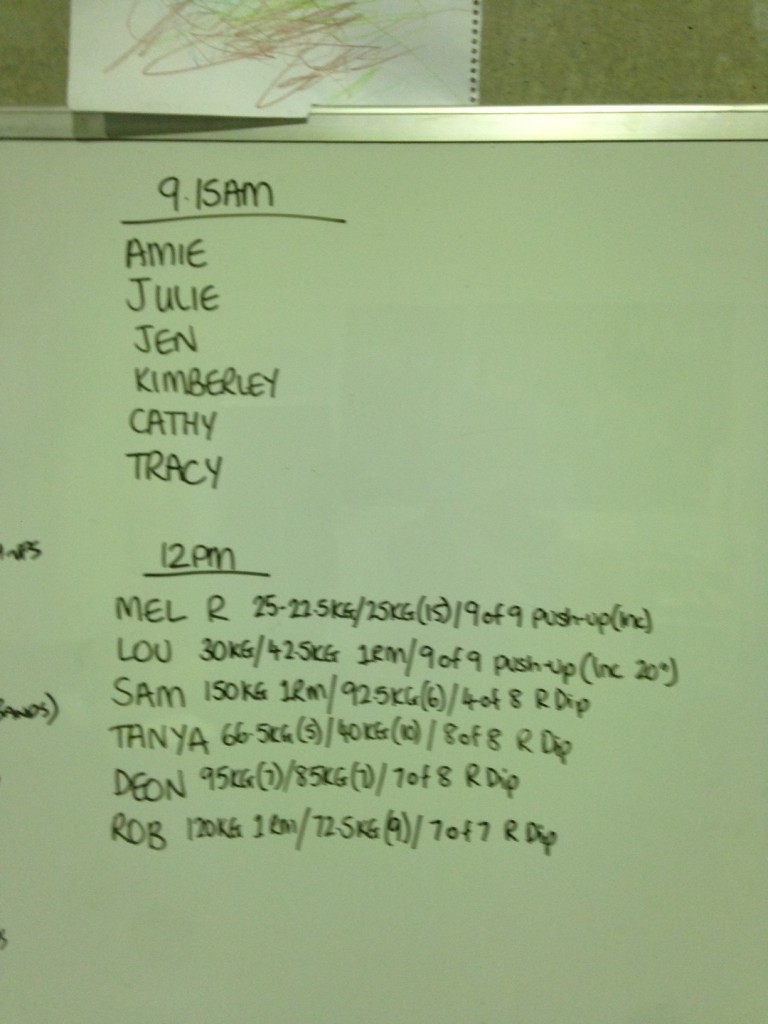 9.15AM
AMIE
JULIE
JEN
KIMBERLEY
CATHY
TRACY
12PM
MEL R 25-22.5KG/25KG(15)/9 of 9 push-up(Inc)
LOU 30KG/42.5KG 1RM/9 of 9 push-up (Inc 20")
SAM 150KG 1RM/92.5KG(6)/4 of 8 R Dip
ANDS)
TANYA 66.5KG(5)/40KG(10)/8 of 8 R Dip
DEON 95KG(7)/85KG(7)/7 of 8 R Dip
ROB 120KG 1RM/72.5KG(9)/7 of 7 R Dip